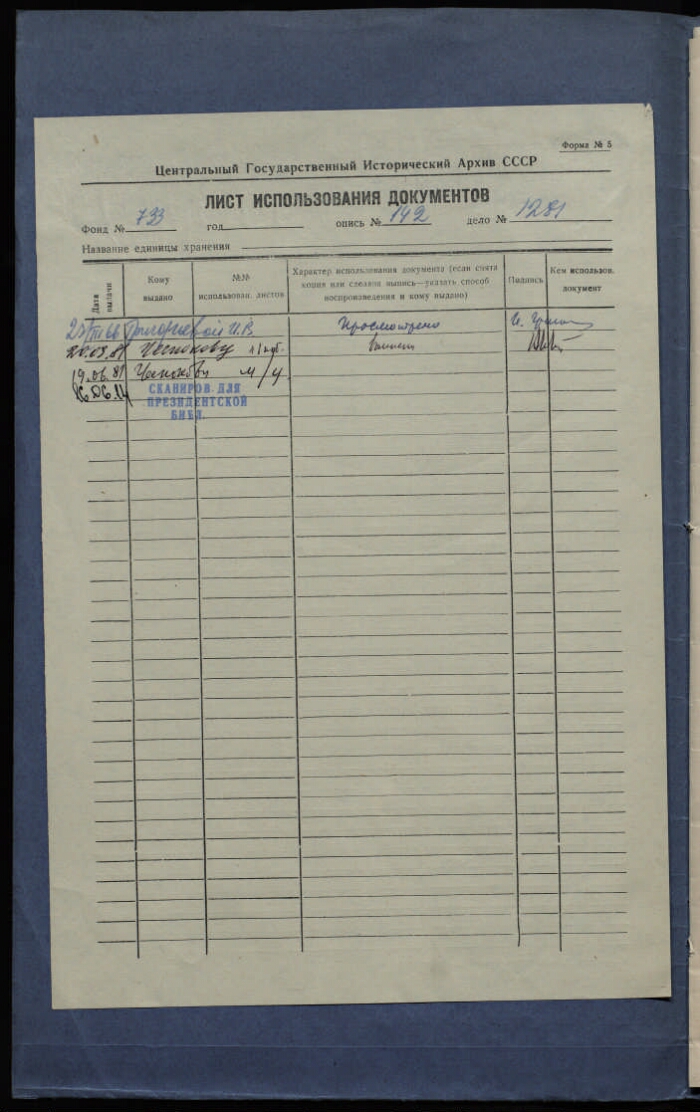 Форма № 5
Центральный Государственный Исторический Архив СССР
ЛИСТ ИСПОЛЬЗОВАНИЯ ДОКУМЕНТОВ
Фонд № 733 год опись № 142 дело № 1281
Название единицы хранения
Дата выдачи
Кому выдано
№№ использован. листов
Характер использования документа (если снята
копия или сделана выпись—указать способ
воспроизведения и кому выдано)
Подпись
Кем использов. документ
Григорьевой И.В. Просмотрено
20.03.81
19.06.81
16.06.14
СКАНИРОВ. ДЛЯ
ПРЕЗИДЕНТСКОЙ
БИБЛ.